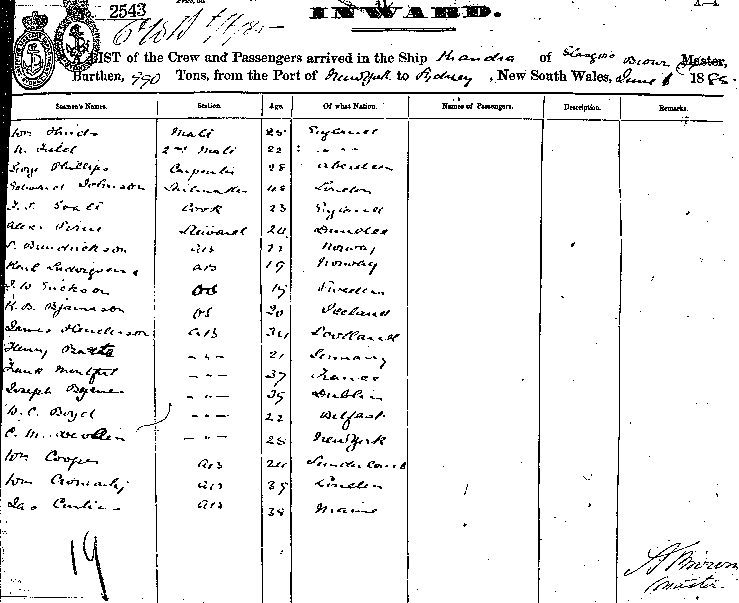 2543
INWARD.
A LIST of the Crew and Passengers arrived in the Ship Khandra of Glasgow Brown Master,
Burthen, 990 Tons, from the Port of New York to Sydney, New South Wales, June 1885
Seamen's Names. Station. Age. Of what Nation. Names of Passengers. Description. Remarks.
Wm Hinds Mate 25 England
Field 2nd Mate 22 " "
George Phillips Carpenter 28 Aberdeen
Edward Johnston Sailmaker 48 London
Cook 23 England
Alex Steward 24 Dundee
AB 22 Norway
Karl AB 19 Norway
Erickson OS 19 Sweden
Bjarnason OS 20 Iceland
James Henderson AB 34 Scotland
Henry - " - 21 Germany
Frank - " - 37 France
Joseph Byrne - " - 39 Dublin
Boyd - " - 22 Belfast
C. M. - " - 28 New York
Wm Cooper AB 24 Sunderland
Wm Cromarty AB 39 London
Jas AB 38 Maine
19
Brown
Master